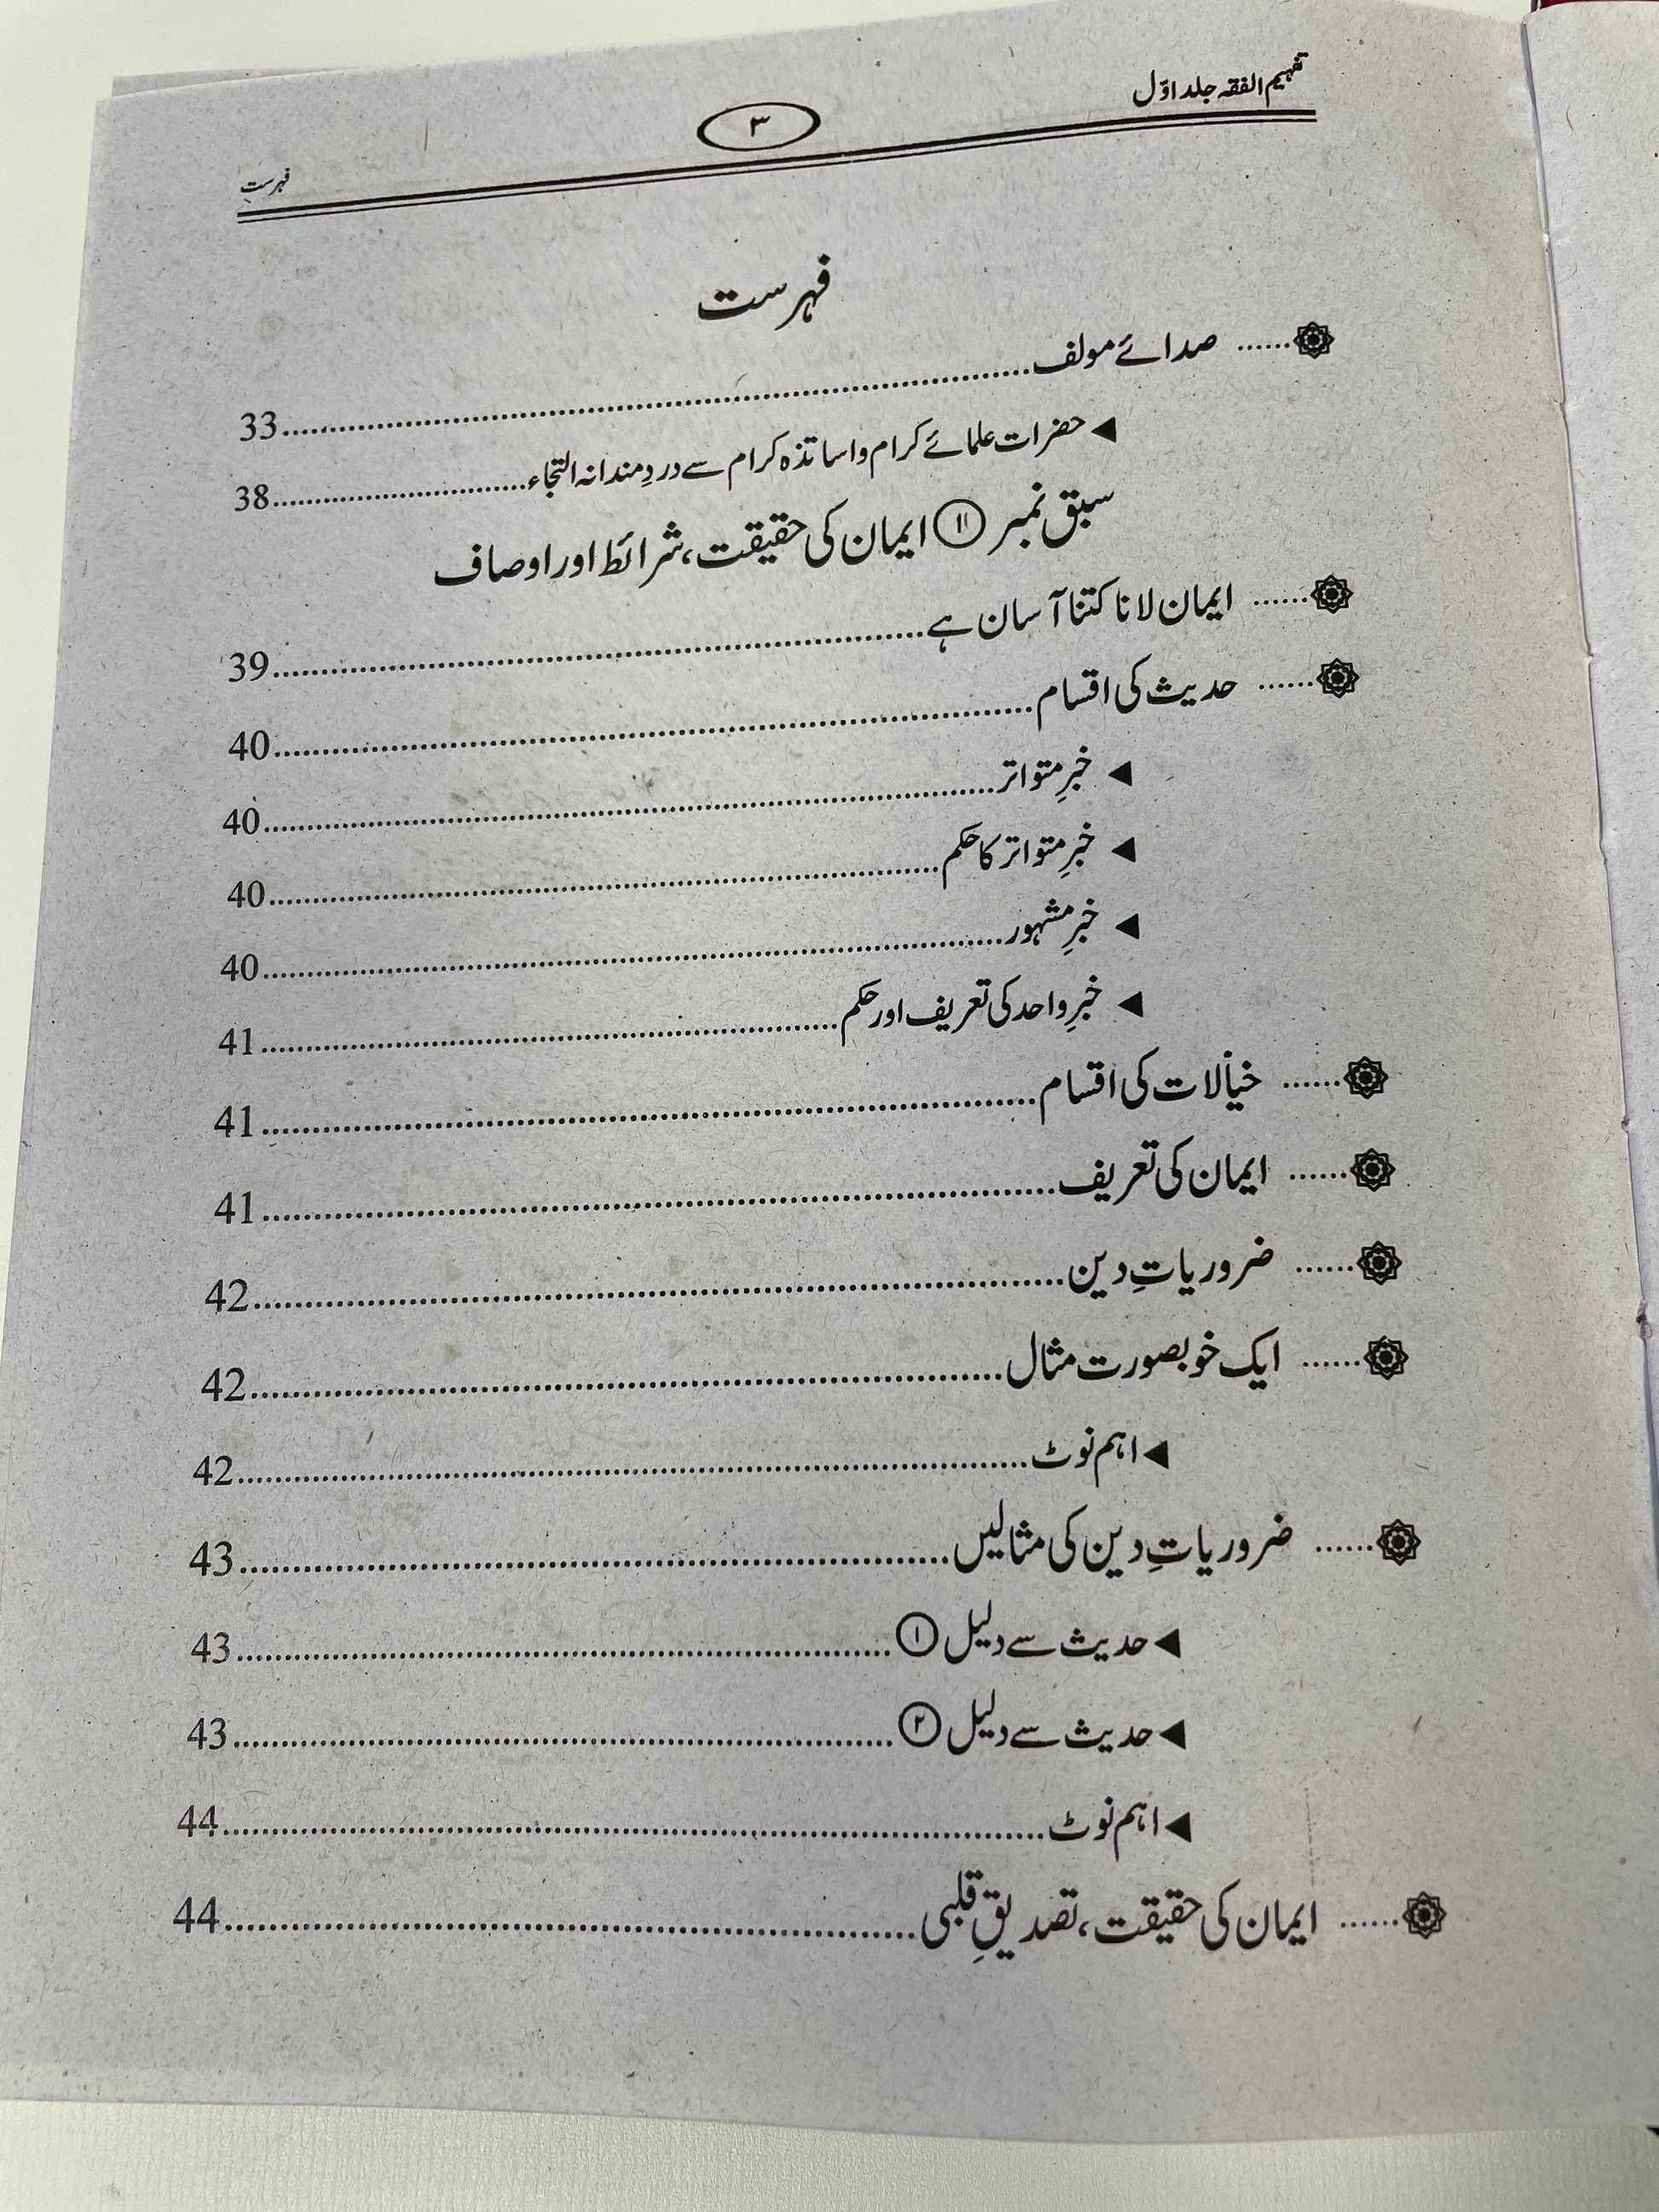 تفہیم الفقہ جلد اوّل
۳
فہرست
فہرست
صدائے مولف 33
حضرات علمائے کرام و اساتذہ کرام سے دردِمندانہ التجاء 38
سبق نمبر ۱۱ ایمان کی حقیقت، شرائط اور اوصاف
ایمان لانا کتنا آسان ہے 39
حدیث کی اقسام 40
خبرِ متواتر 40
خبرِ متواتر کا حکم 40
خبرِ مشہور 40
خبرِ واحد کی تعریف اور حکم 41
خیالات کی اقسام 41
ایمان کی تعریف 41
ضروریاتِ دین 42
ایک خوبصورت مثال 42
اہم نوٹ 42
ضروریاتِ دین کی مثالیں 43
حدیث سے دلیل ۱ 43
حدیث سے دلیل ۲ 43
اہم نوٹ 44
ایمان کی حقیقت، تصدیقِ قلبی 44